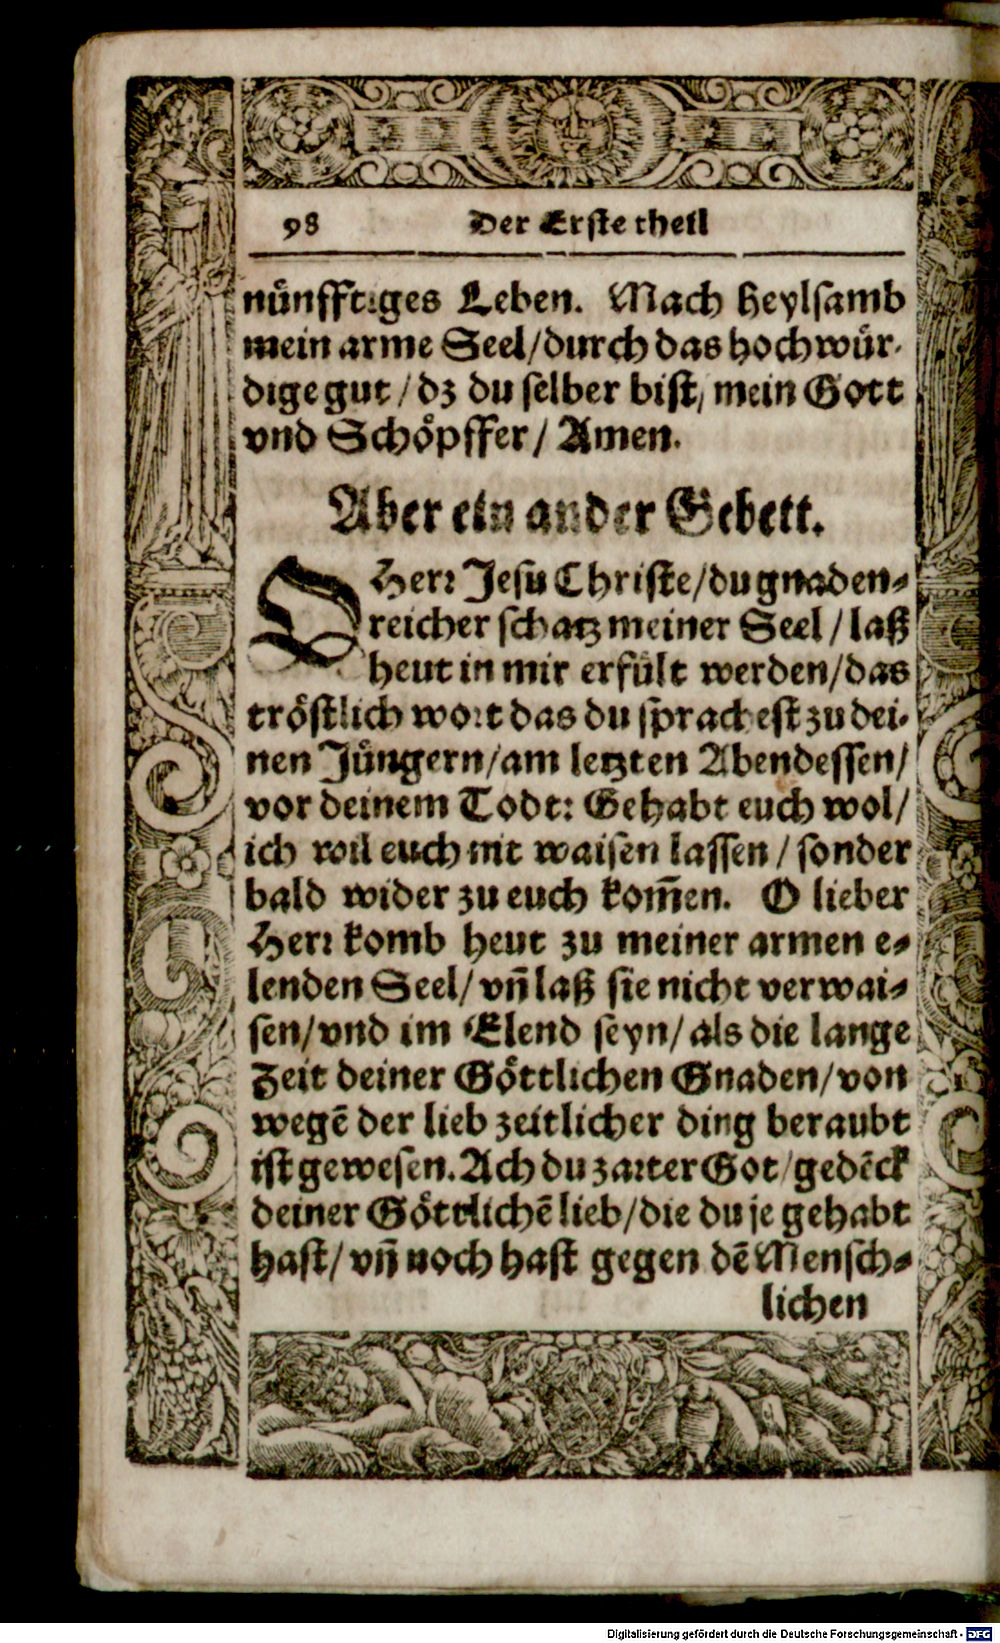 98 Der Erste theil
nuͤnfftiges Leben. Mach heylsamb
mein arme Seel/durch das hochwuͤr-
dige gut/dz du selber bist, mein Gott
vnd Schoͤpffer/Amen.
Aber ein ander Gebett.
O Herr Jesu Christe/du gnaden-
reicher schatz meiner Seel/laß
heut in mir erfuͤlt werden/das
troͤstlich wort das du sprachest zu dei-
nen Juͤngern/am letzten Abendessen/
vor deinem Todt: Gehabt euch wol/
ich wil euch nit waisen lassen/sonder
bald wider zu euch kom̄en. O lieber
Herr komb heut zu meiner armen e-
lenden Seel/vn̄ laß sie nicht verwai-
sen/vnd im Elend seyn/als die lange
Zeit deiner Goͤttlichen Gnaden/von
wegē der lieb zeitlicher ding beraubt
ist gewesen. Ach du zarter Got/gedēck
deiner Goͤttlichē lieb/die du je gehabt
hast/vn̄ noch hast gegen dē Mensch-
lichen
Digitalisierung gefördert durch die Deutsche Forschungsgemeinschaft - DFG